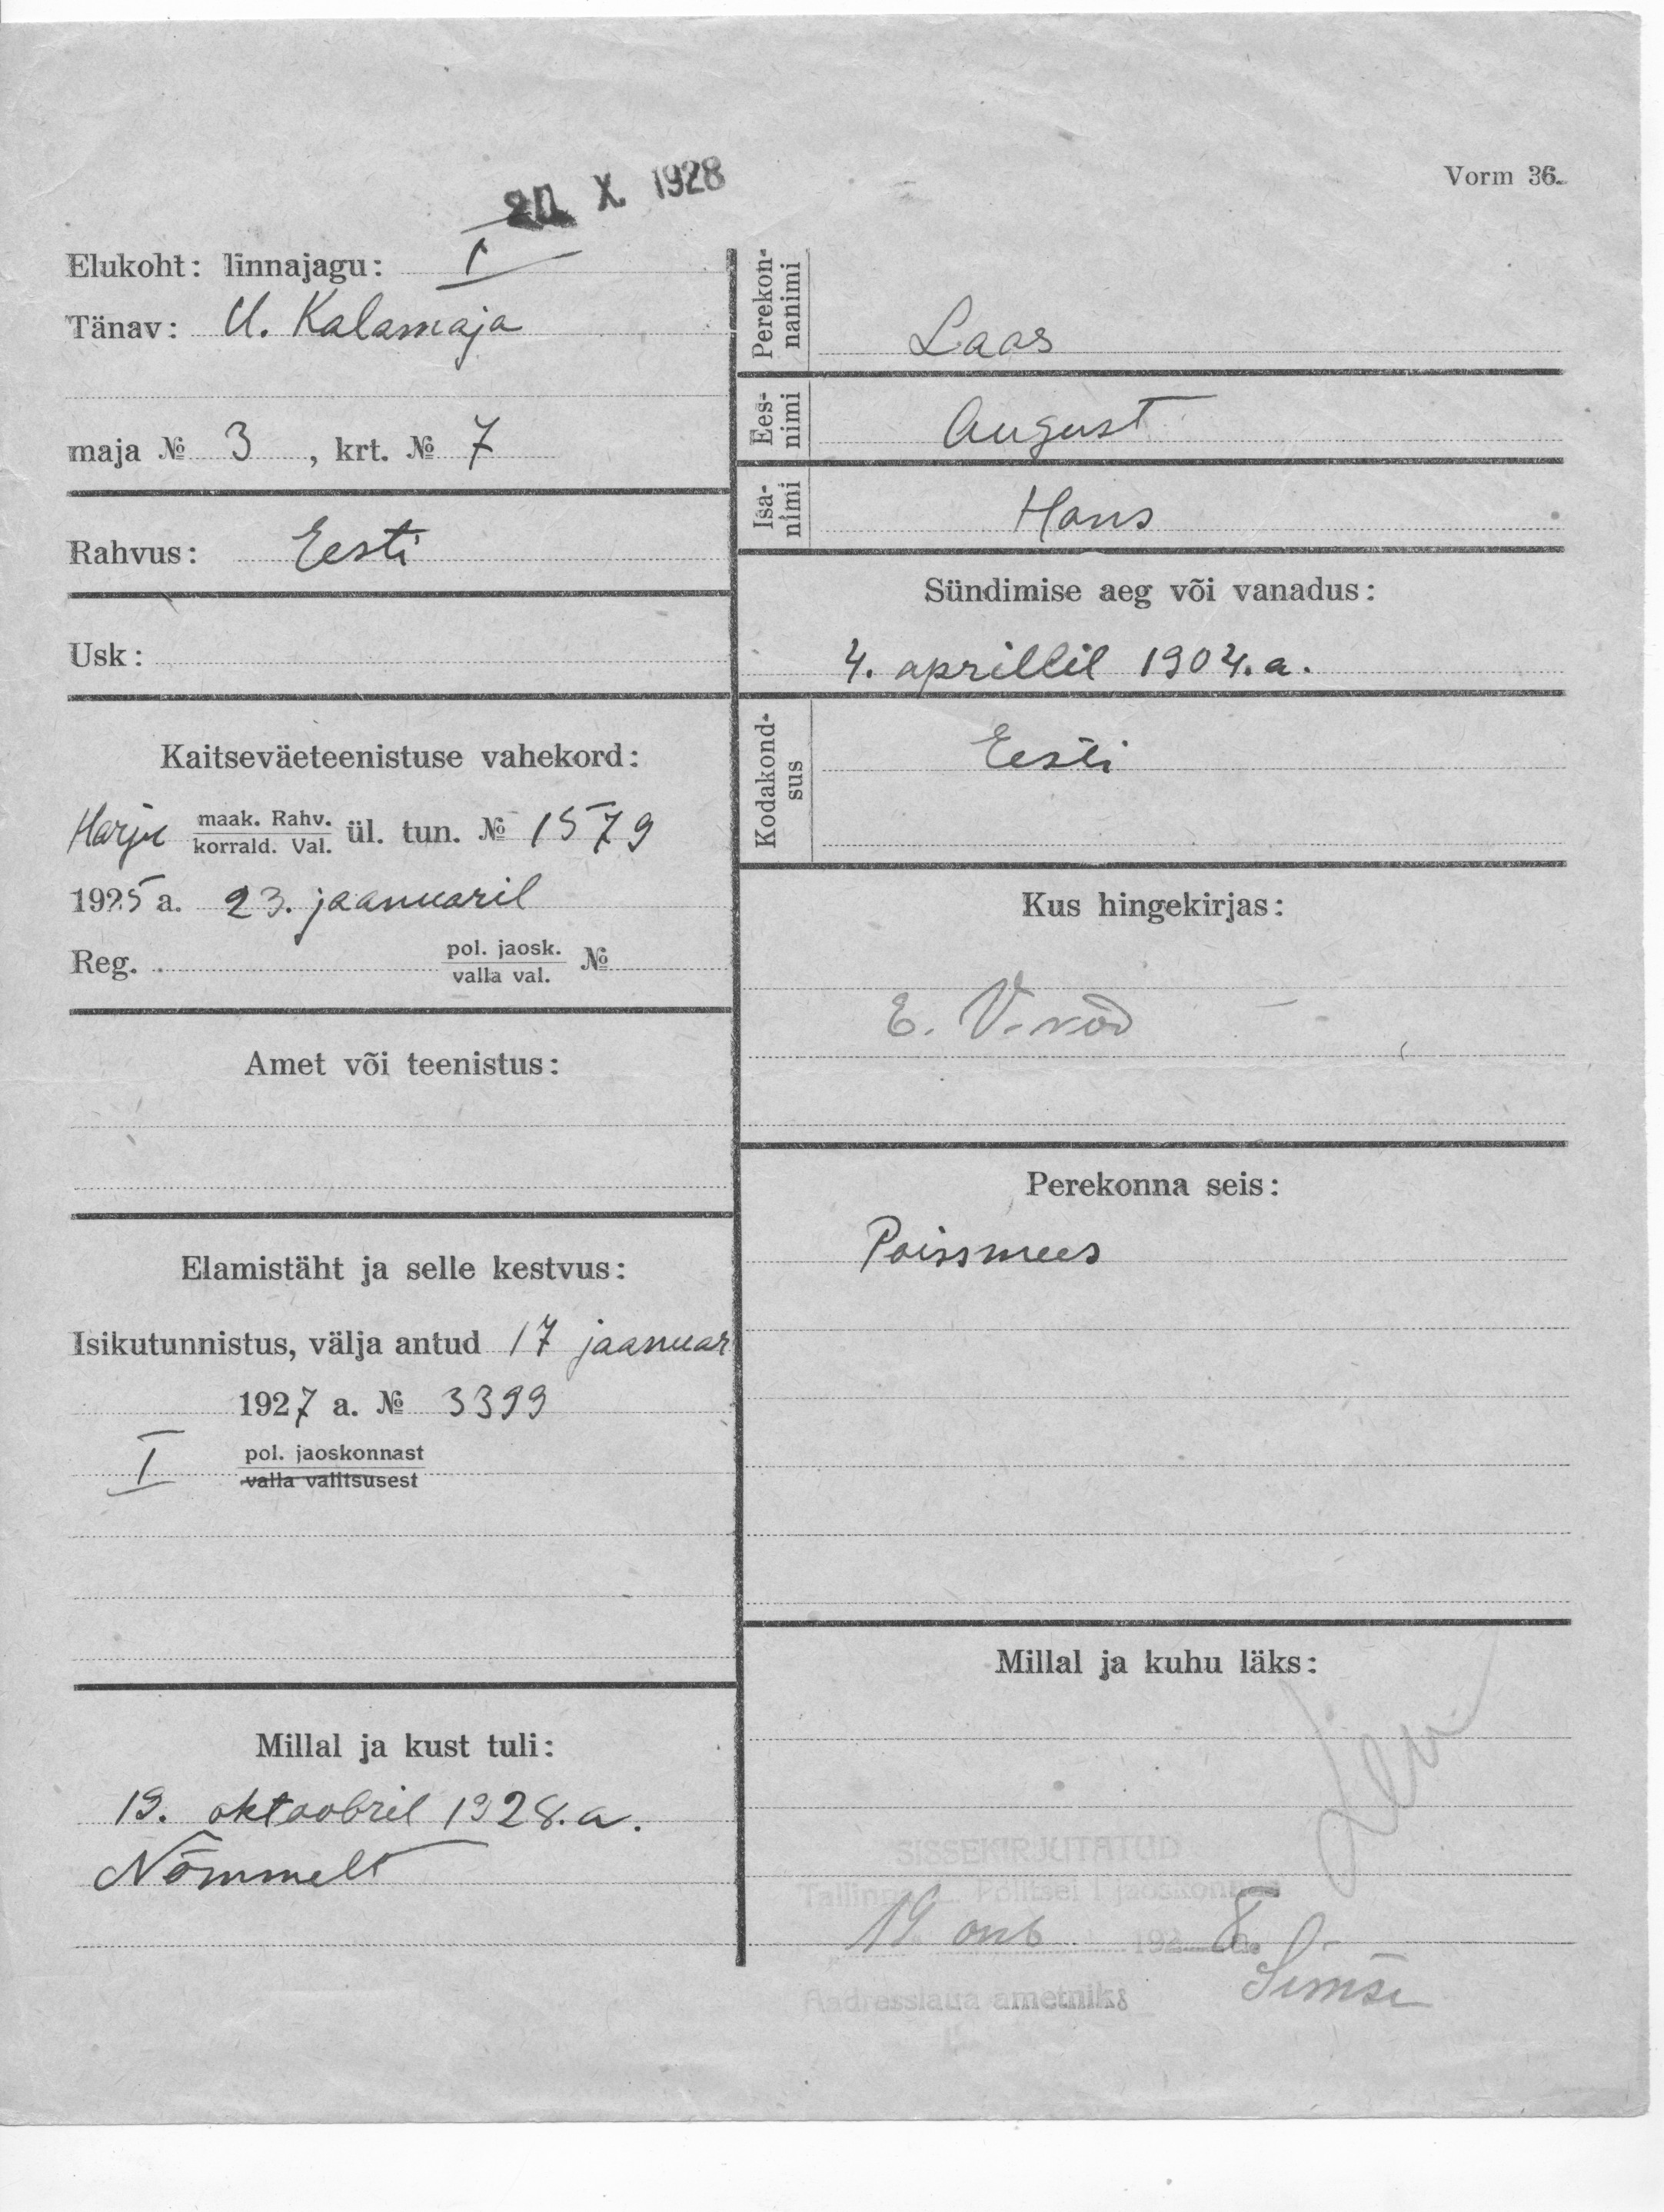 20. X. 1928
Vorm 36.
Elukoht: linnajagu: I
Tänav: U. Kalamaja
maja № 3, krt. № 7
Rahvus: Eesti
Usk:
Kaitseväeteenistuse vahekord:
Harju maak. Rahv. ül. tun. № 1579
korrald. Val.
1925 a. 23. jaanuaril
Reg. pol. jaosk. №
valla val.
Amet või teenistus:
Elamistäht ja selle kestvus:
Isikutunnistus, välja antud 17 jaanuar
1927 a. № 3399
I pol. jaoskonnast
valla valitsusest
Millal ja kust tuli:
19. oktoobril 1928.a.
Nõmmelt
Perekon-
nanimi
Laas
Ees-
nimi
August
Isa-
nimi
Hans
Sündimise aeg või vanadus:
4. aprillil 1904.a.
Kodakond-
sus
Eesti
Kus hingekirjas:
E. V.
Perekonna seis:
Poissmees
Millal ja kuhu läks:
SISSEKIRJUTATUD
Tallinna Politsei I jaoskonnas
19 1928 a.
Aadresslaua ametnik: